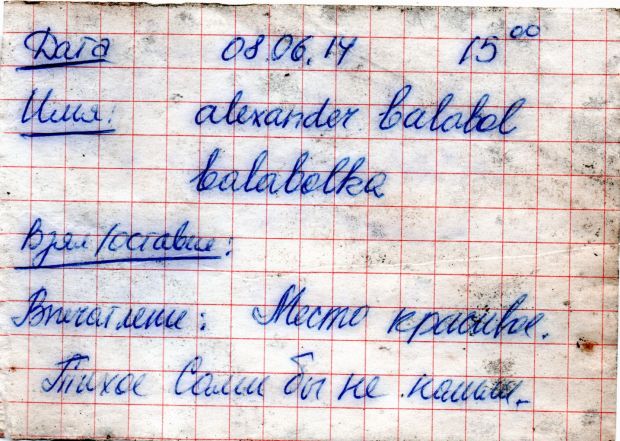 Дата 08.06.14 15⁰⁰
Имя: alexander balabol
balabolka
Взял/оставил:
Впечатление: Место красивое.
Тихое Сами бы не нашли.